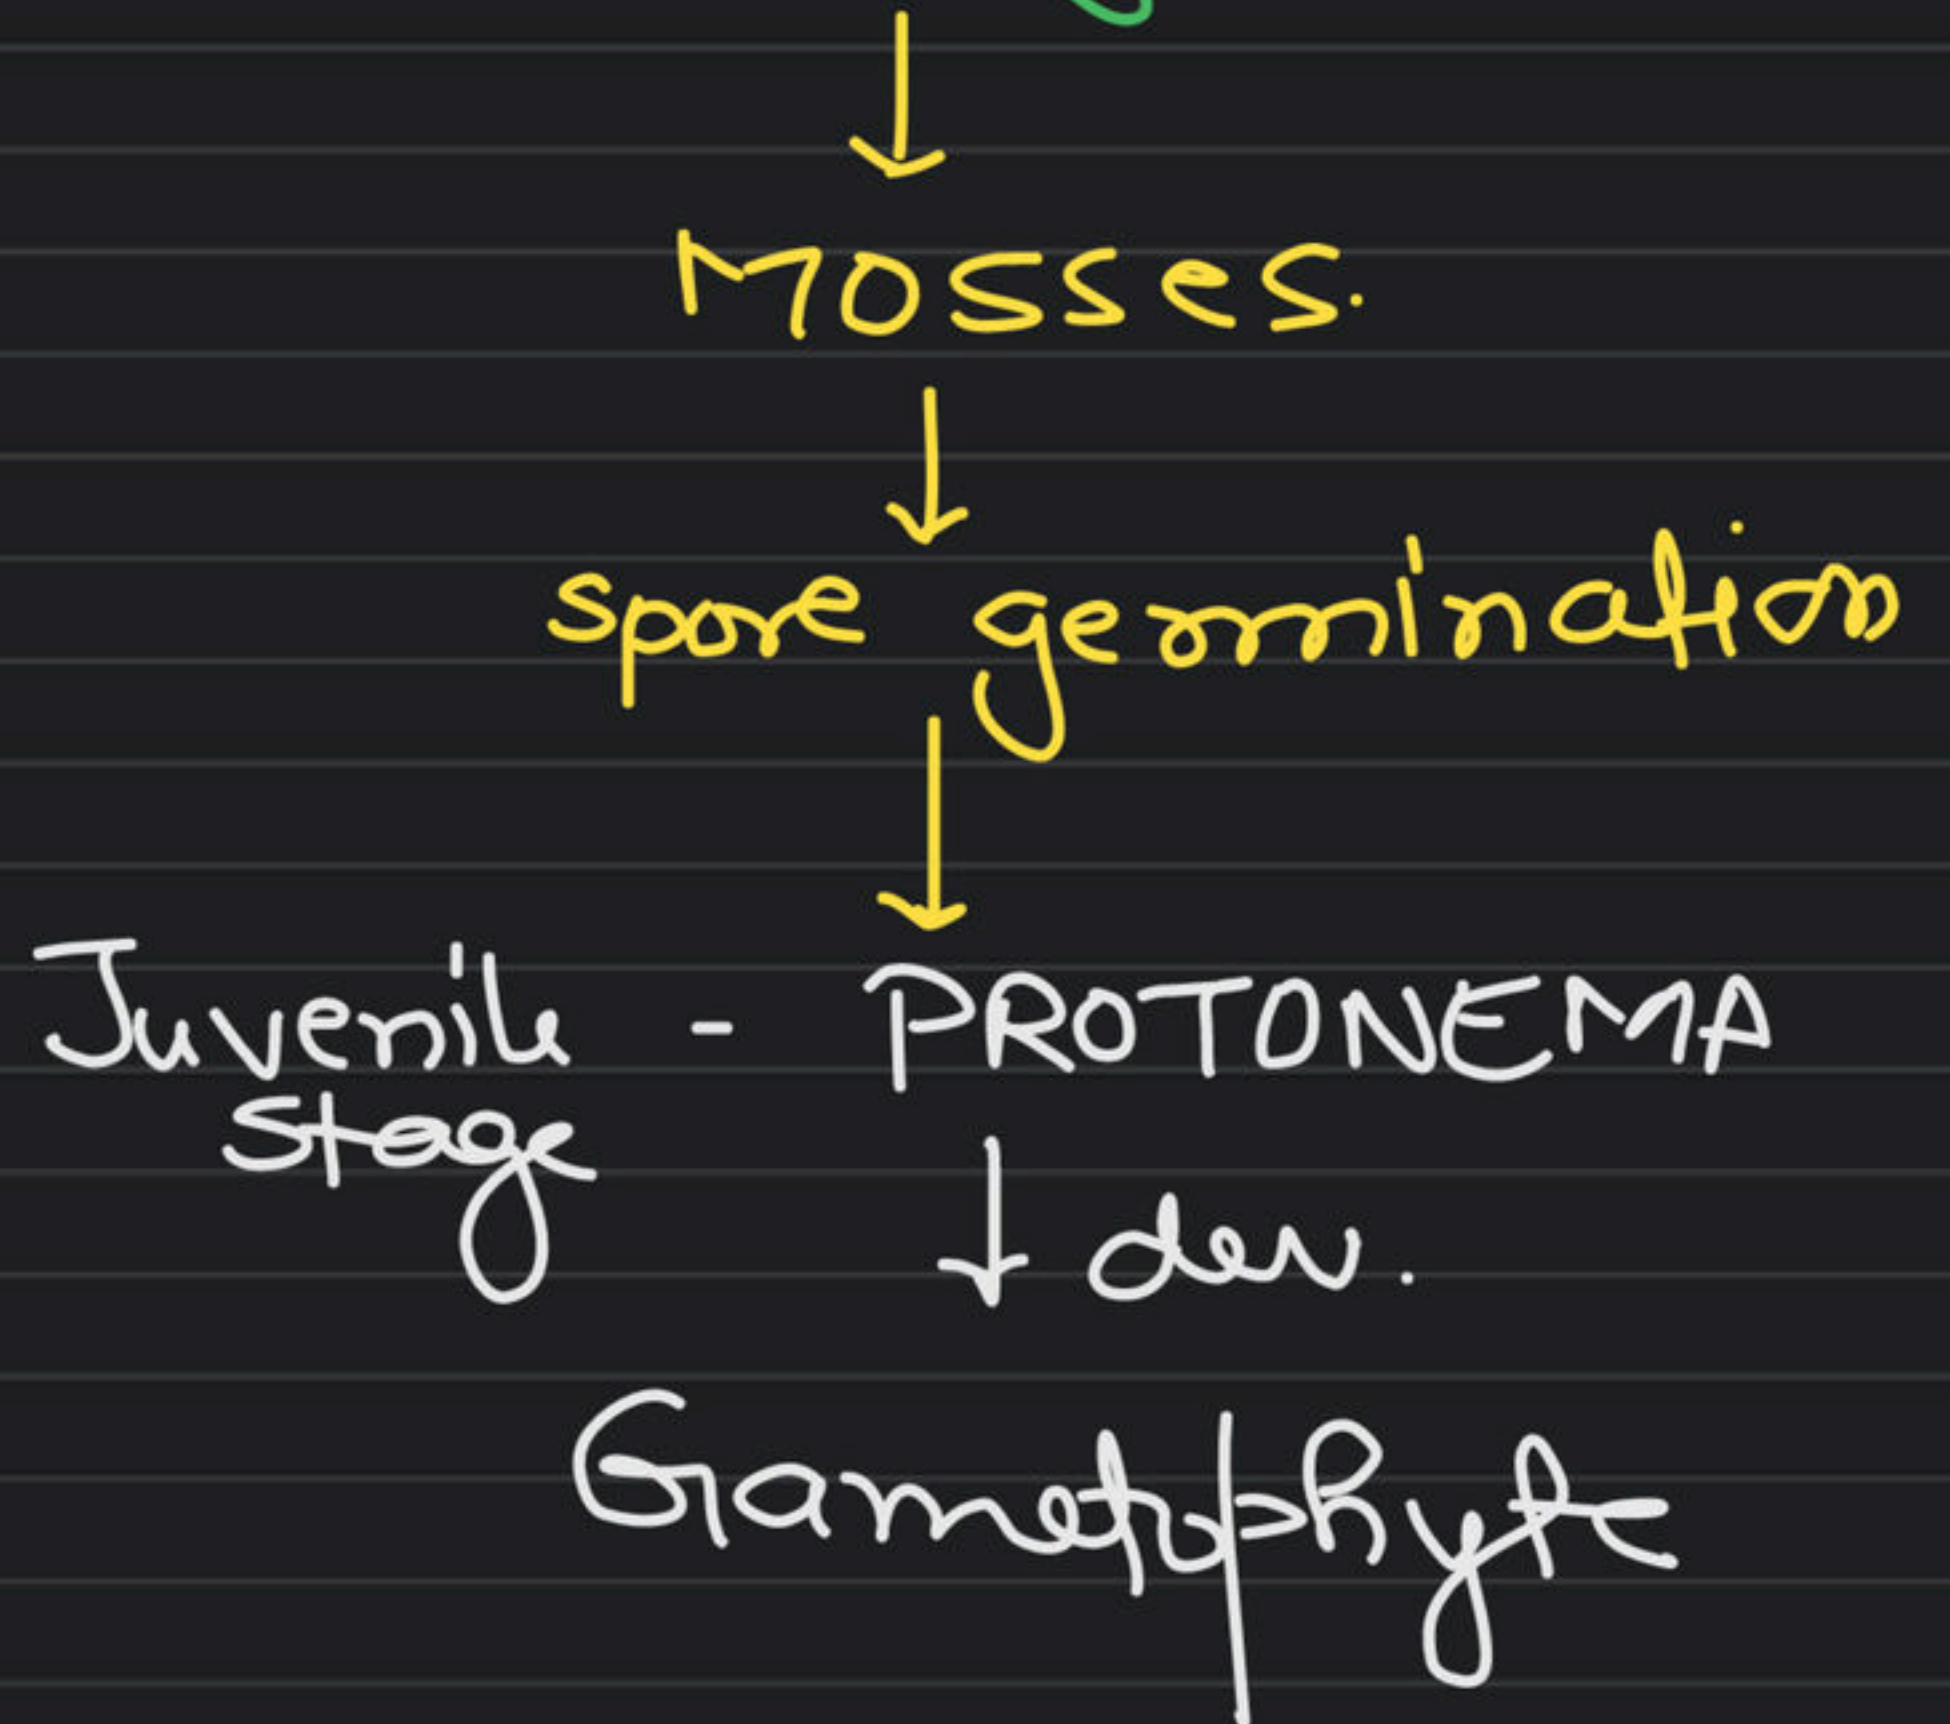 Mosses.
spore germination
Juvenile - PROTONEMA
stage
dev.
Gametophyte